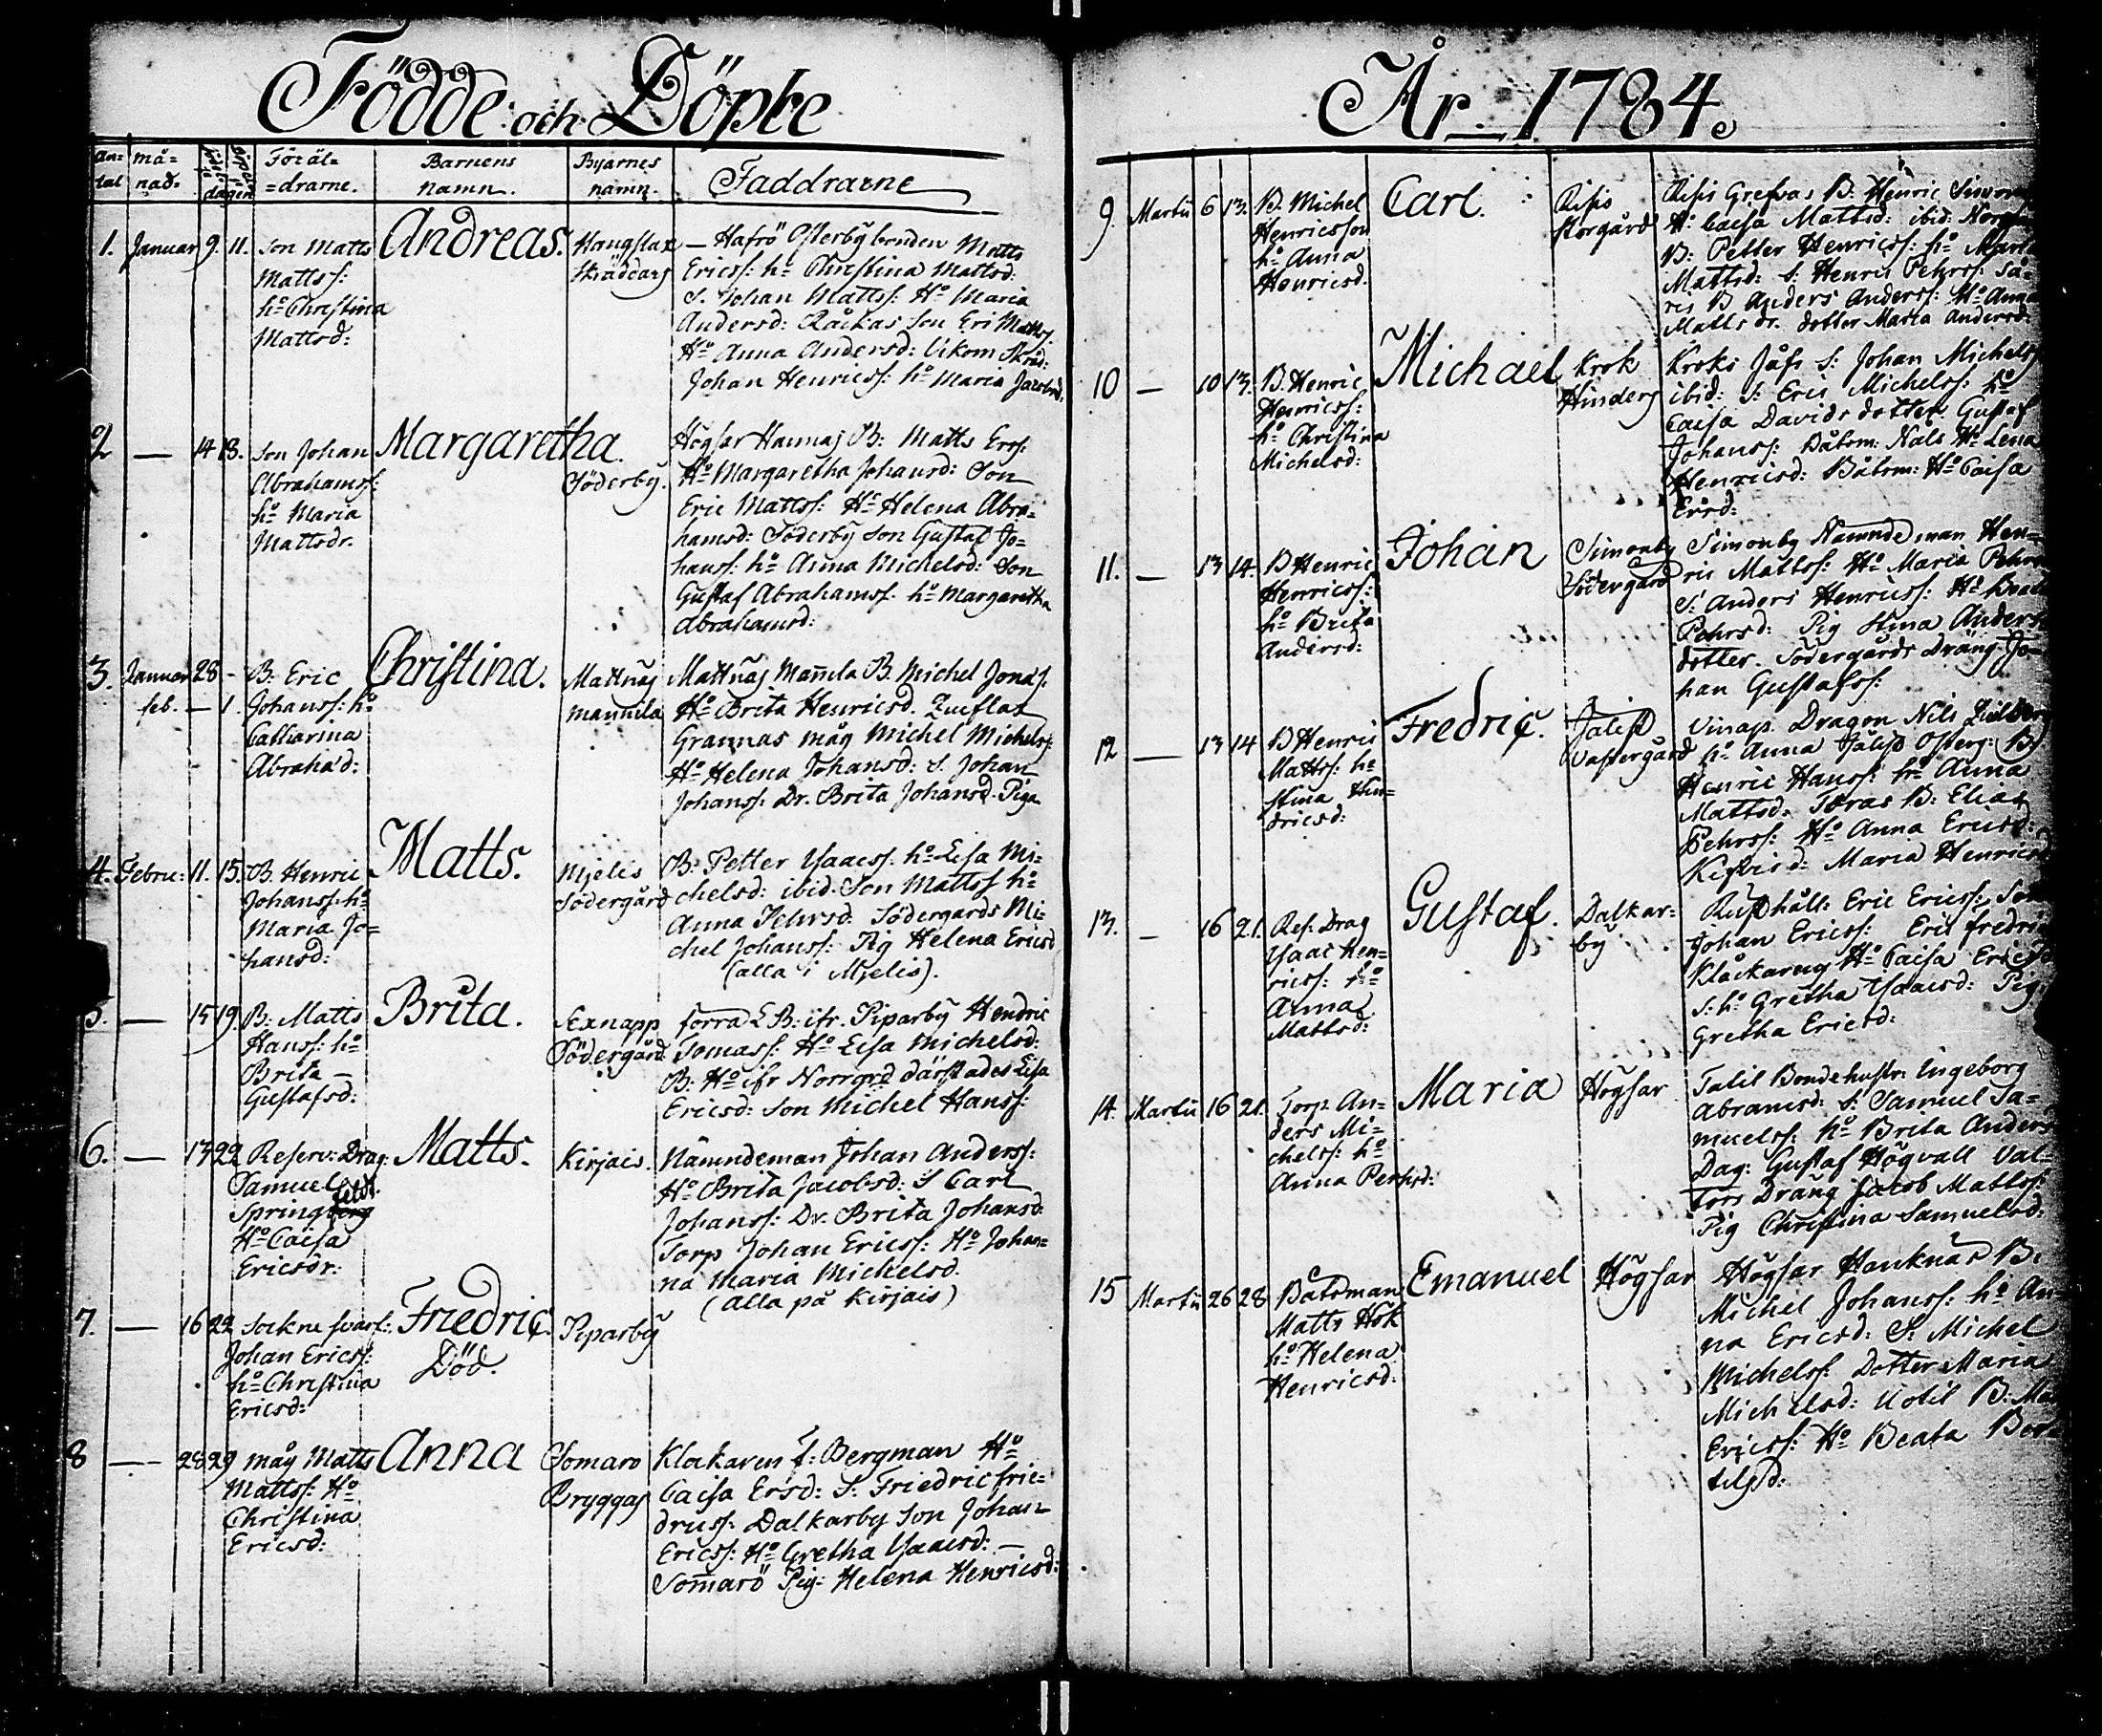 Födde och Döpte
An= må= Föräl= Barnens Byarnes Faddrarne
tal nad= dagen =drarne. namn. namn.
1. Januar 9. 11. Son Matts
Mattss:
ho Christina
Mattsd:
Andreas.
— Hafrö Österby bonden Matts
Ericss: ho Christina Mattsd:
S. Johan Mattss: Ho Maria
Andersd: Råckas Son Eri Mattss.
Ho Anna Andersd: Vikom
Johan Henricss: ho Maria
2 — 14 18. Son Johan
Abrahamss:
ho Maria
Mattsdr.
Margaretha.
Söderby.
Högsar Hannas B: Matts Erss:
Ho Margaretha Johansd: Son
Eric Mattss: Ho Helena Abra=
hamsd: Söderby Son Gustaf Jo=
hanss: ho Anna Michelsd: Son
Gustaf Abrahamss. ho Margaretha
Abrahamsd:
3. Januar 28 - B: Eric
feb. — 1. Johanss: ho
Catharina
Abraha'd:
Christina.
Mattnäs
Mannila
Mattnäs Mañila B. Michel Jonass.
Ho Brita Henricsd.
Grannas måg Michel Michelss:
Ho Helena Johansd: S. Johan
Johanss: Dr. Brita Johansd. Piga
4. Febru: 11. 15. B. Henric
Johanss: ho
Maria Jo=
hansd:
Matts.
Mjelis
Södergård
B: Petter Ysaacss: ho Lisa Mi=
chelsd: ibid. Son Mattss ho
Anna Pehrsd: Södergards Mi=
chel Johanss: Pig Helena Ericsd
(alla i Mjelis).
5. — 15 19. B: Matts
Hanss: ho
Brita —
Gustafsd:
Brita.
Sexnapp
Södergård.
förra B: ifr. Piparby Hendric
Tomass: Ho Lisa Michelsd:
B: Ho ifr Norrgrd därstades Lisa
Ericsd: Son Michel Hanss:
6. — 13 22 Reserv: Drag:
Samuel
Springberg feldt.
Ho Caisa
Ericsdr:
Matts.
Kirjais.
Nämndeman Johan Anderss:
Ho Brita Jacobsd: S Carl
Johanss: Dr. Brita Johansd:
Torp Johan Ericss: Ho Johan=
na Maria Michelsd.
(Alla på Kirjais)
7. — 16 22 Sockne
Johan Ericss:
ho Christina
Ericsd:
Fredric.
Död.
Piparby
8 — 28 29 Måg Matts
Mattss: Ho
Christina
Ericsd:
Anna
Somaro
Bryggas
Klockaren f: Bergman Ho
Caisa Ersd: S: Friedric frie=
drichss. Dalkarby Son Johan
Ericss: Ho Gretha Ysaacsd: —
Som̄arö Pig: Helena Henricsd:
År 1784.
9. Martii 6 13. B. Michel
Henricsson
ho Anna
Henricsd.
Carl.
Risis
Storgård
Risis Grefvas B: Henric
Ho Caisa Mattsd: ibid:
B: Petter Henricss: ho
Mattsd: S. Henric Pehrss:
B Anders Anderss: Ho Anna
Matts dr. dotter Maria Andersd:
10 — 10 13. B. Henric
Henricss:
ho Christina
Michelsd:
Michael
Krok
Hinders
Kroks S: Johan Michelss
ibid: S: Eric Michelss: ho
Caisa Davids dotter. Gustaf
Johanss: Båtsm: Ho Lena
Henricsd: Båtsm: Ho Caisa
Ersd:
11. — 13 14. B Henric
Henricss:
ho Brita
Andersd:
Johan
Simonby
Södergård
Simonby Nämndeman Hen=
ric Mattss: Ho Maria
S: Anders Henricss: Ho
Pehrsd: Pig Stina Anders
dotter. Södergårds Dräng Jo=
han Gustafss:
12 — 13 14 B Henric
Mattss: ho
Stina Hen=
dricsd:
Fredric.
Jälist
Västergård
Dragon Nils
ho Anna Jälist Österg: B
Henric Hanss: ho Anna
Mattsd: B: Elias
Pehrss: Ho Anna Ericsd:
Maria Henricsd
13. — 16 21. Res: Drag
Ysaac Hen=
ricss: ho
Anna
Mattsd:
Gustaf.
Dalkar=
by
Rusthåll: Eric Ericss: Son
Johan Ericss: Eric fredri
Klåckareng Ho Caisa
S: ho Gretha Ysaacsd: Pig
Gretha Ericsd:
14. Martii 16 21. Torp. An=
ders Mi=
chelss: ho
Anna Perhsd:
Maria
Högsar
Talil Bondehustr. Ingeborg
Abramsd: S: Samuel Sa=
muelss: ho Brita Anders
Dag: Gustaf Högvall Val=
tors Dräng Jacob Mattss:
Pig Christina Samuelsd:
15 Martii 26 28 Båtsman
Matts Hök
ho Helena
Henricsd:
Emanuel
Högsar
Högsar Hanknäs B:
Michel Johanss: ho An=
na Ericsd: S: Michel
Michelss: Dotter Maria
Michelsd: B:
Ericss: Ho Beata Ber=
tilsd: